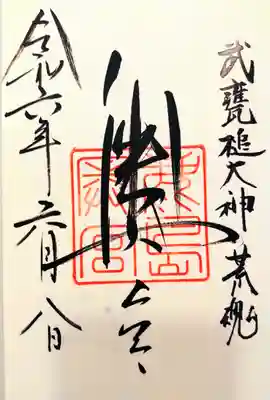 武甕槌大神荒魂
奥宮
令和六年六月八日